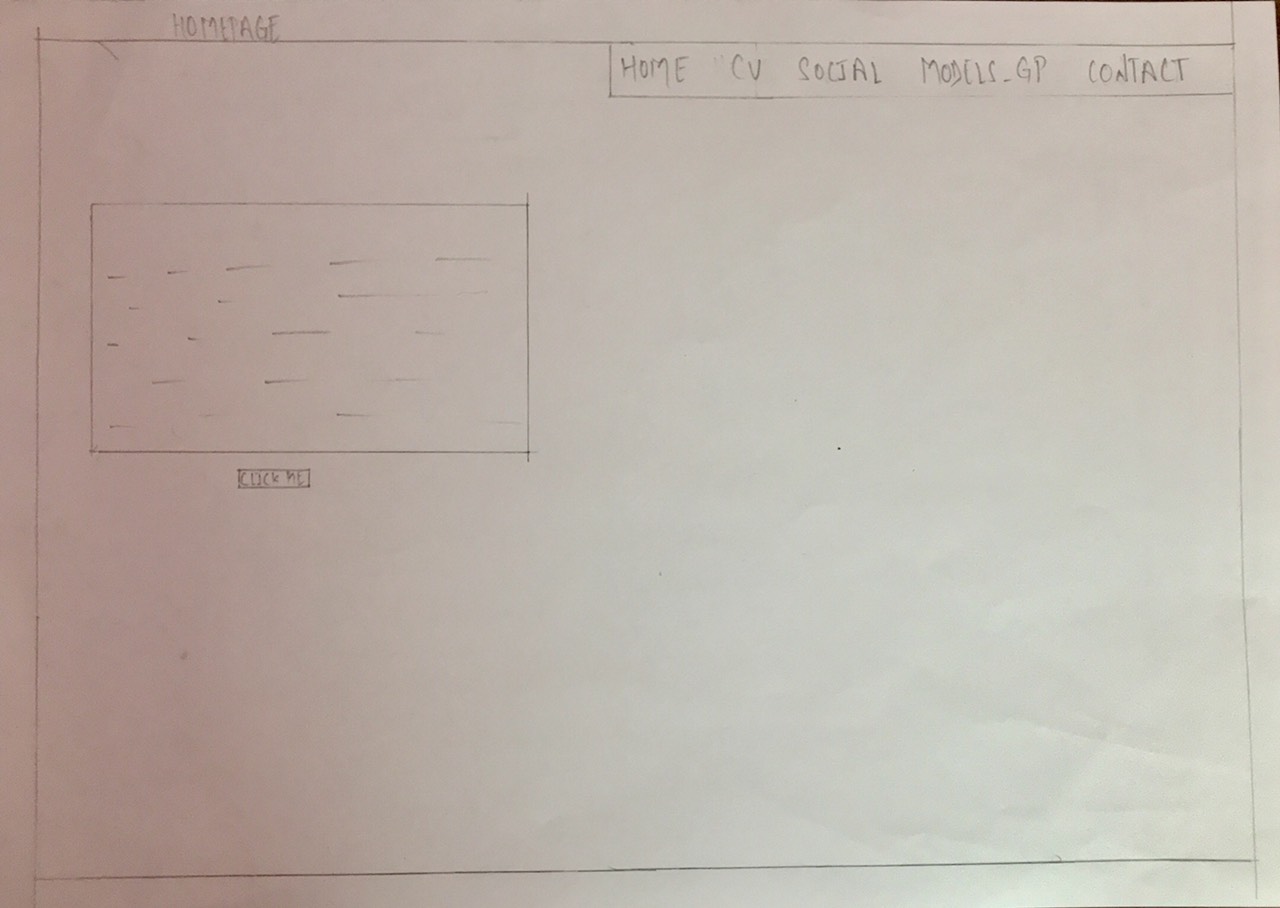 HOMEPAGE
HOME CV SOCIAL MODELS_GP CONTACT
CLICK ME